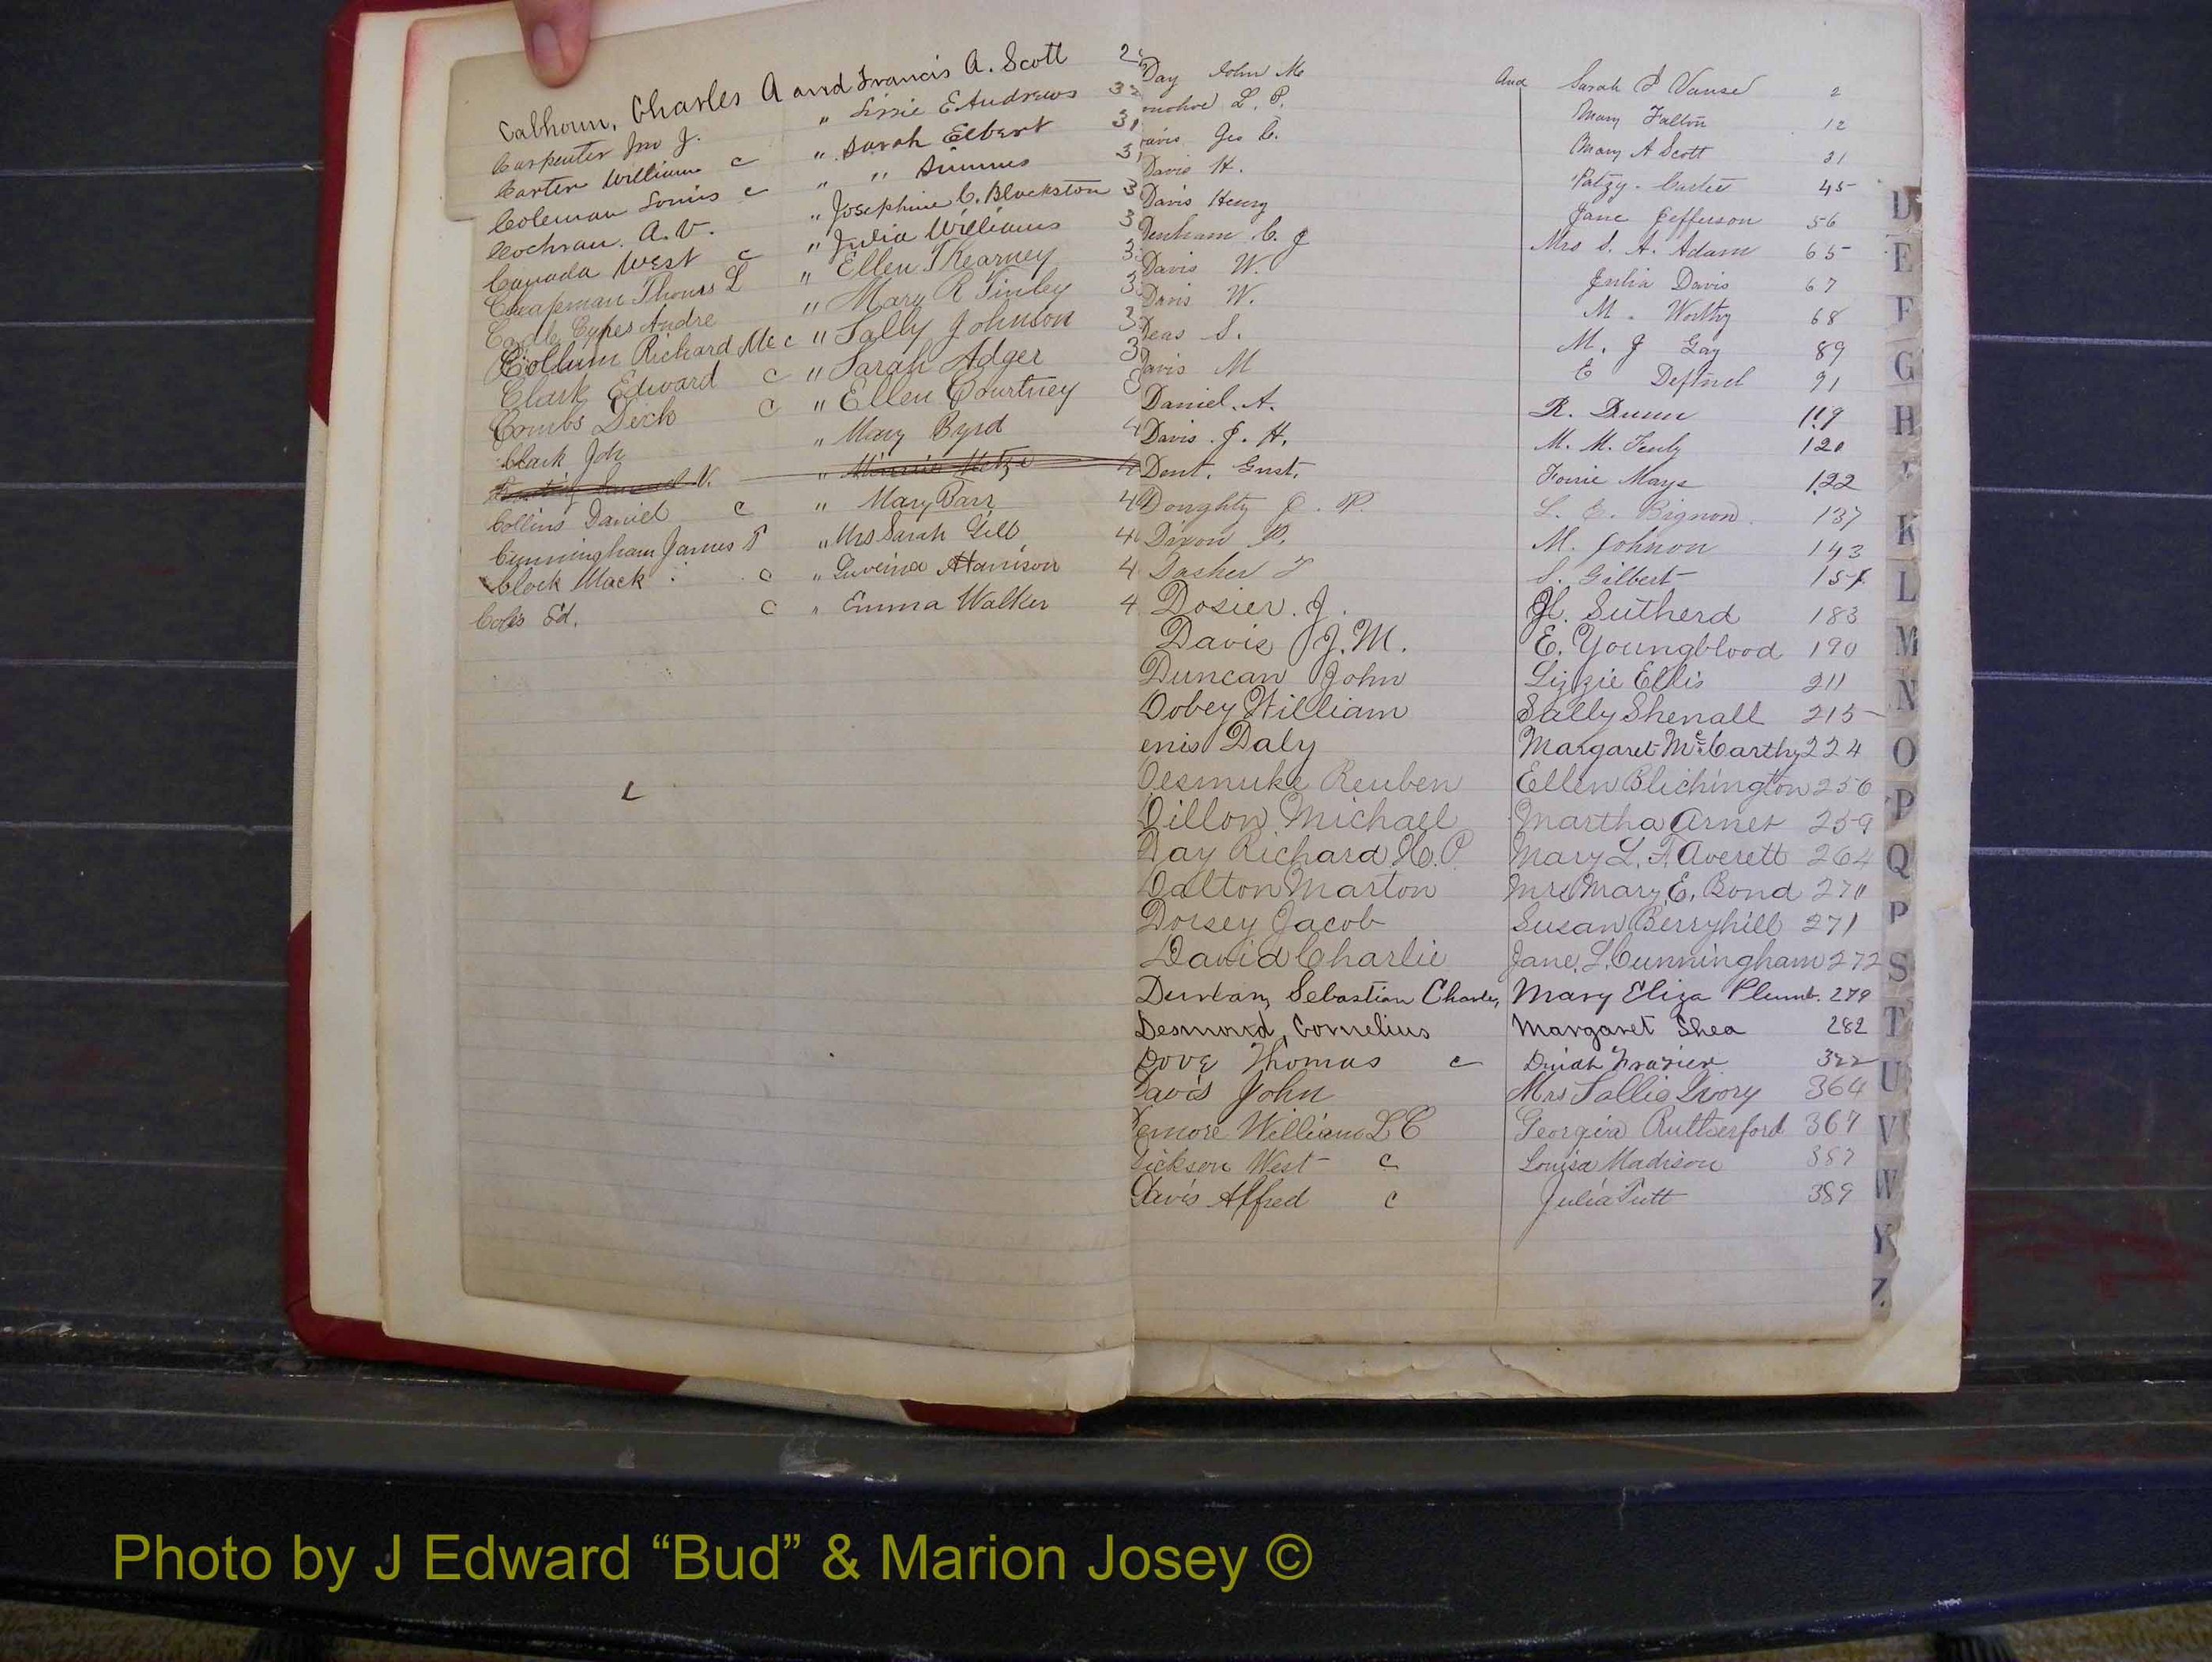 Calhoun, Charles A and Francis A. Scott 2
Carpenter Jno J. " Lizzie E Andrews 3
Carter William c " Sarah Elbert 3
Coleman Louis c " " Simms 3
Cochran. A. V. " Josephine C. Blackston 3
Canada West c " Julia Williams 3
Chapman Thomas L " Ellen T Kearney 3
Cadle Cyhes Andre " Mary R Tinley 3
Collum Richard Mc c " Sally Johnson 3
Clark Edward c " Sarah Adger 3
Combs Dick c " Ellen Courtney
Clark Joh " Mary Byrd 4
V. " Minnie 4
Collins Daniel c " Mary Barr 4
Cunningham James T " Mrs Sarah Gill 4
Clock Mack c " Luveina Harrison 4
Coles Ed. c " Emma Walker 4
Day John M and Sarah J Vause 2
onohoe L. P. Mary Fallon 12
avis Geo C. Mary A Scott 31
Davis H. Patzy. Carter 45
Davis Henry Jane Jefferson 56
Denham C. J Mrs S. A. Adam 65
Davis W. Julia Davis 67
Davis W. M. Worthy 68
Deas S. M. J Gay 89
Davis M E 91
Daniel. A. R. Dunn 119
Davis. J. H. M. M. 120
Dent. Gust. Mays 122
Doughty J. P. L. E. Bignon. 137
Dixon P. M. Johnon 143
Dasher T S. Gilbert 151
Dosier. J. H. Sutherd 183
Davis J. M. E. Youngblood 190
Duncan John Lizzie Ellis 211
Dobey William Sally Shenall 215
enis Daly Margaret McCarthy 224
Desmuke Reuben Ellen Blichington 256
Dillon Michael Martha Arner 259
Day Richard H. P. Mary L. F. Averett 264
Dalton Marton Mrs Mary E. Bond 270
Dorsey Jacob Susan Berryhill 271
David Charlie Jane. L. Cunningham 272
Durban, Sebastian Charles, Mary Eliza Plumb. 279
Desmond, Cornelius Margaret Shea 282
Dove Thomas c Dinah Frazier 322
Davis John Mrs Sallie Ivory 364
Demore William L C Georgia Rutherford 367
Dickson West c Louisa Madison 387
Davis Alfred c Julia Tutt 389
D
E
F
G
H
I
K
L
M
N
O
P
Q
P
S
T
U
V
W
Y
Z.
Photo by J Edward “Bud” & Marion Josey ©